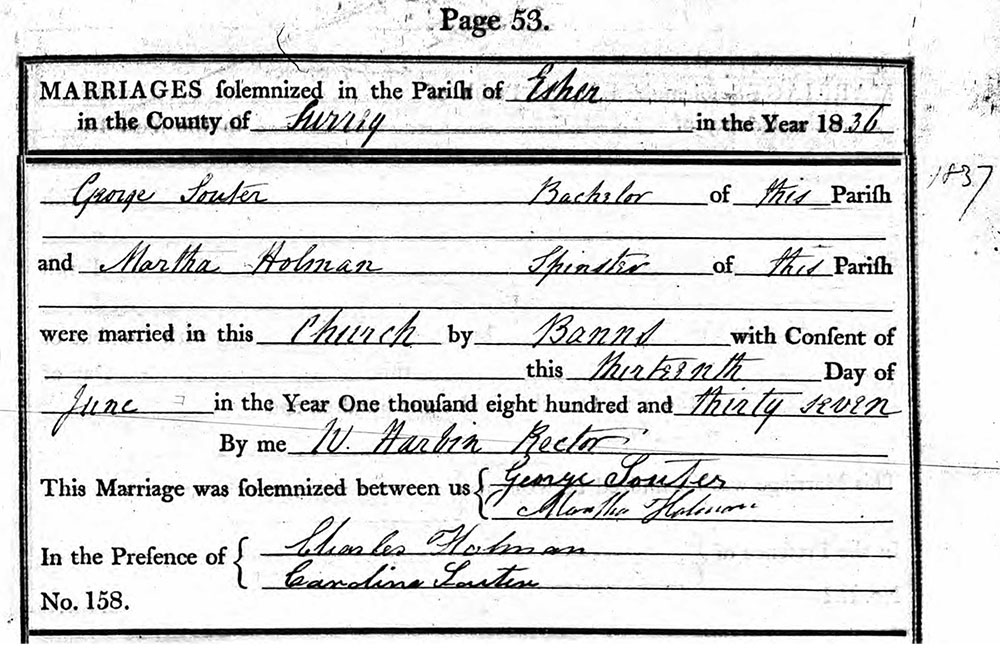 Page 53.
MARRIAGES solemnized in the Parish of Esher
in the County of Surrey in the Year 1836
1837
George Souter Bachelor of this Parish
and Martha Holman Spinster of this Parish
were married in this Church by Banns with Consent of
this thirteenth Day of
June in the Year One thousand eight hundred and thirty seven
By me W. Harbin Rector
This Marriage was solemnized between us { George Souter
Martha Holman
In the Presence of { Charles Holman
Caroline Souter
No. 158.